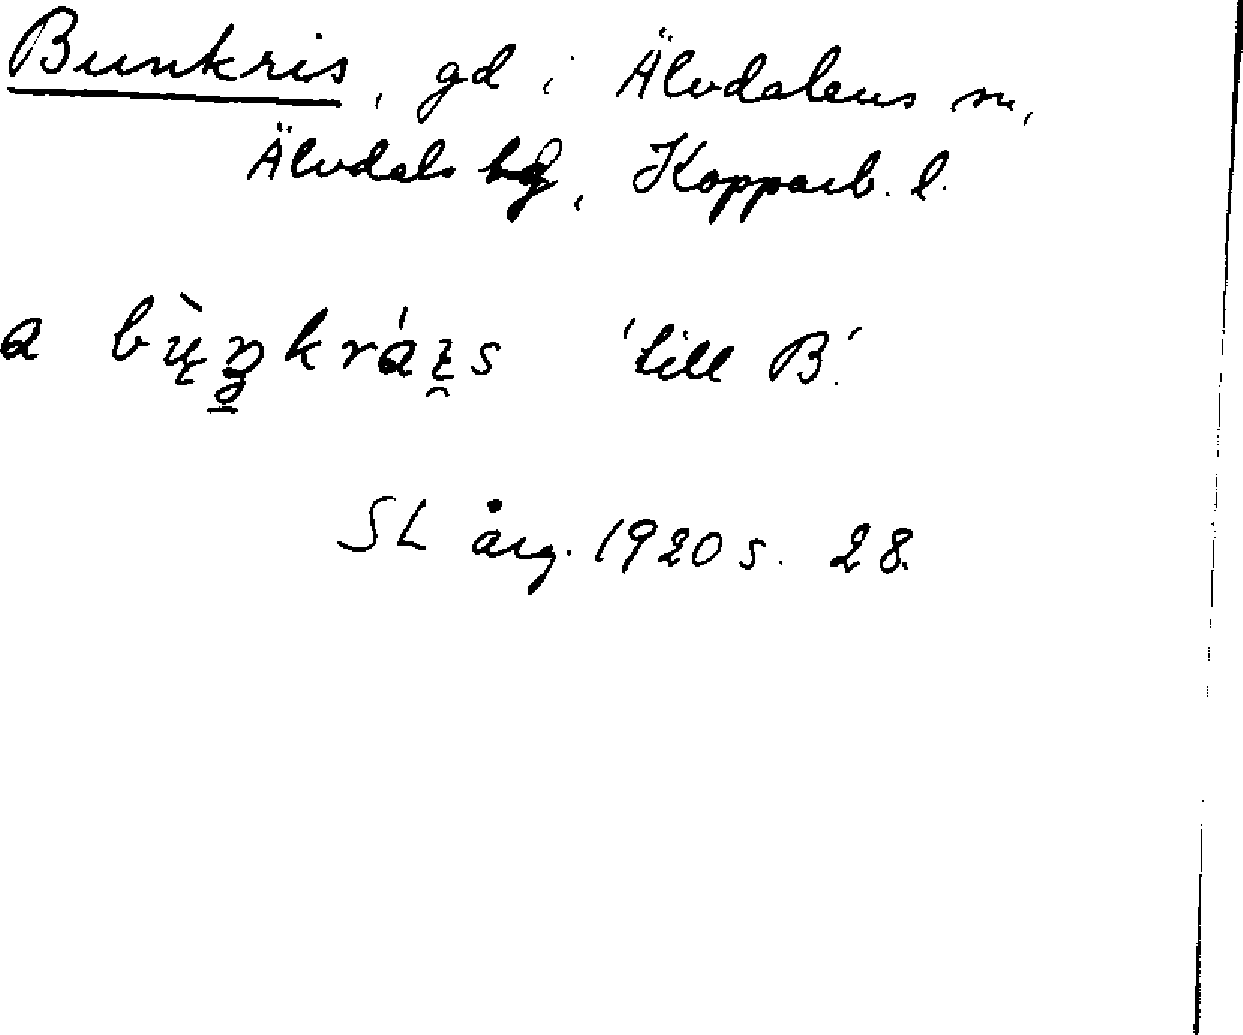 Bunkris, gd i Älvdalens sn,
Älvdals hd, Kopparb. l.
a 'till B.'
SL årg. 1920 s. 28.